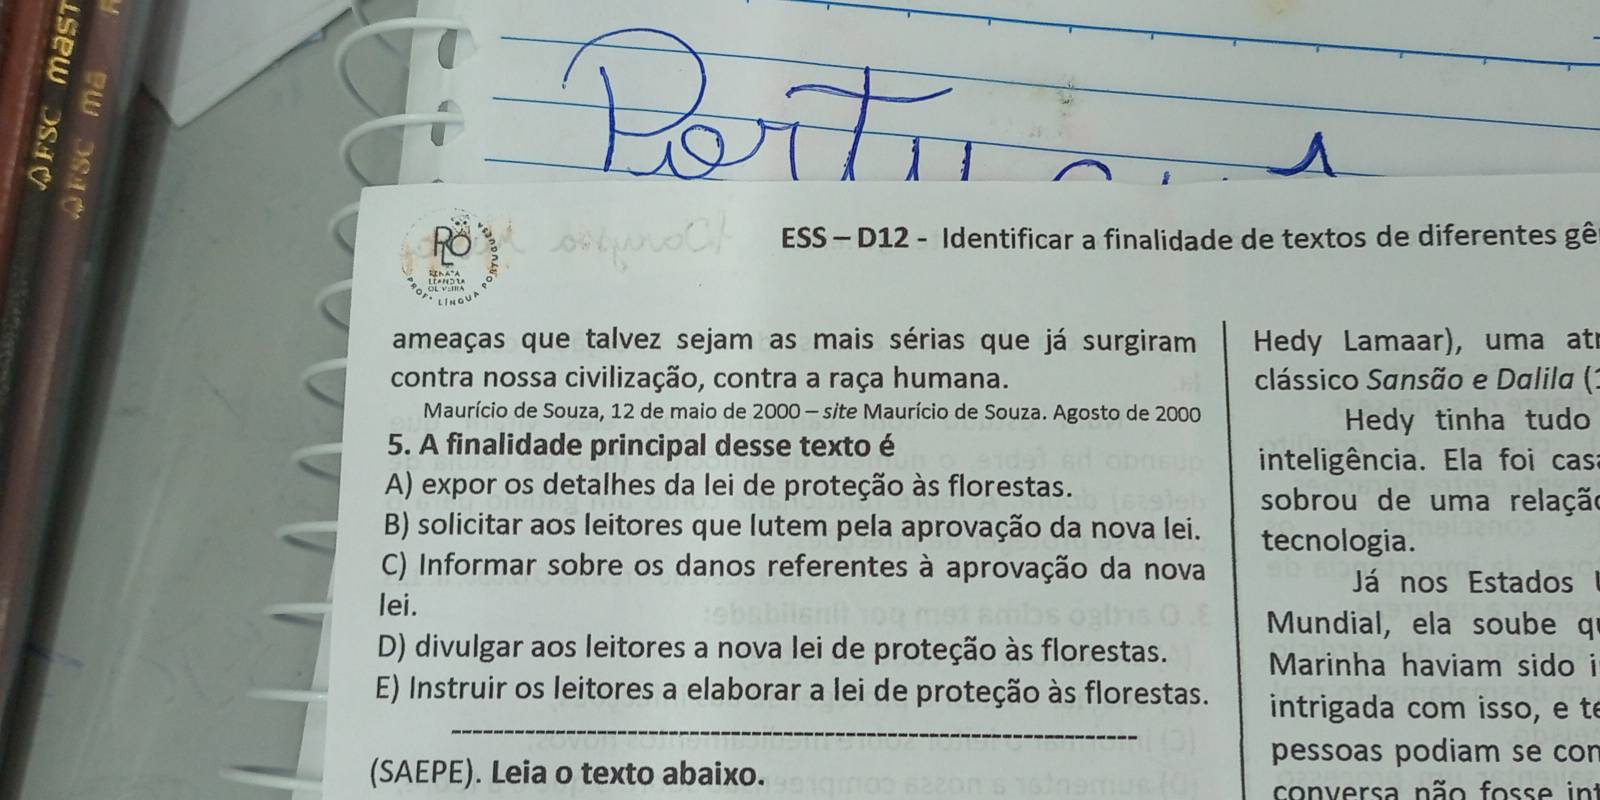 FSC mast
FSC ma
RLO
RENATA
LEANDRA
OLIVEIRA
PROFª LÍNGUA PORTUGUESA
ESS – D12 - Identificar a finalidade de textos de diferentes gê
ameaças que talvez sejam as mais sérias que já surgiram
contra nossa civilização, contra a raça humana.
Maurício de Souza, 12 de maio de 2000 – site Maurício de Souza. Agosto de 2000
5. A finalidade principal desse texto é
A) expor os detalhes da lei de proteção às florestas.
B) solicitar aos leitores que lutem pela aprovação da nova lei.
C) Informar sobre os danos referentes à aprovação da nova
lei.
D) divulgar aos leitores a nova lei de proteção às florestas.
E) Instruir os leitores a elaborar a lei de proteção às florestas.
(SAEPE). Leia o texto abaixo.
Hedy Lamaar), uma at
clássico Sansão e Dalila (
Hedy tinha tudo
inteligência. Ela foi cas
sobrou de uma relaçã
tecnologia.
Já nos Estados
Mundial, ela soube q
Marinha haviam sido i
intrigada com isso, e te
pessoas podiam se con
conversa não fosse int